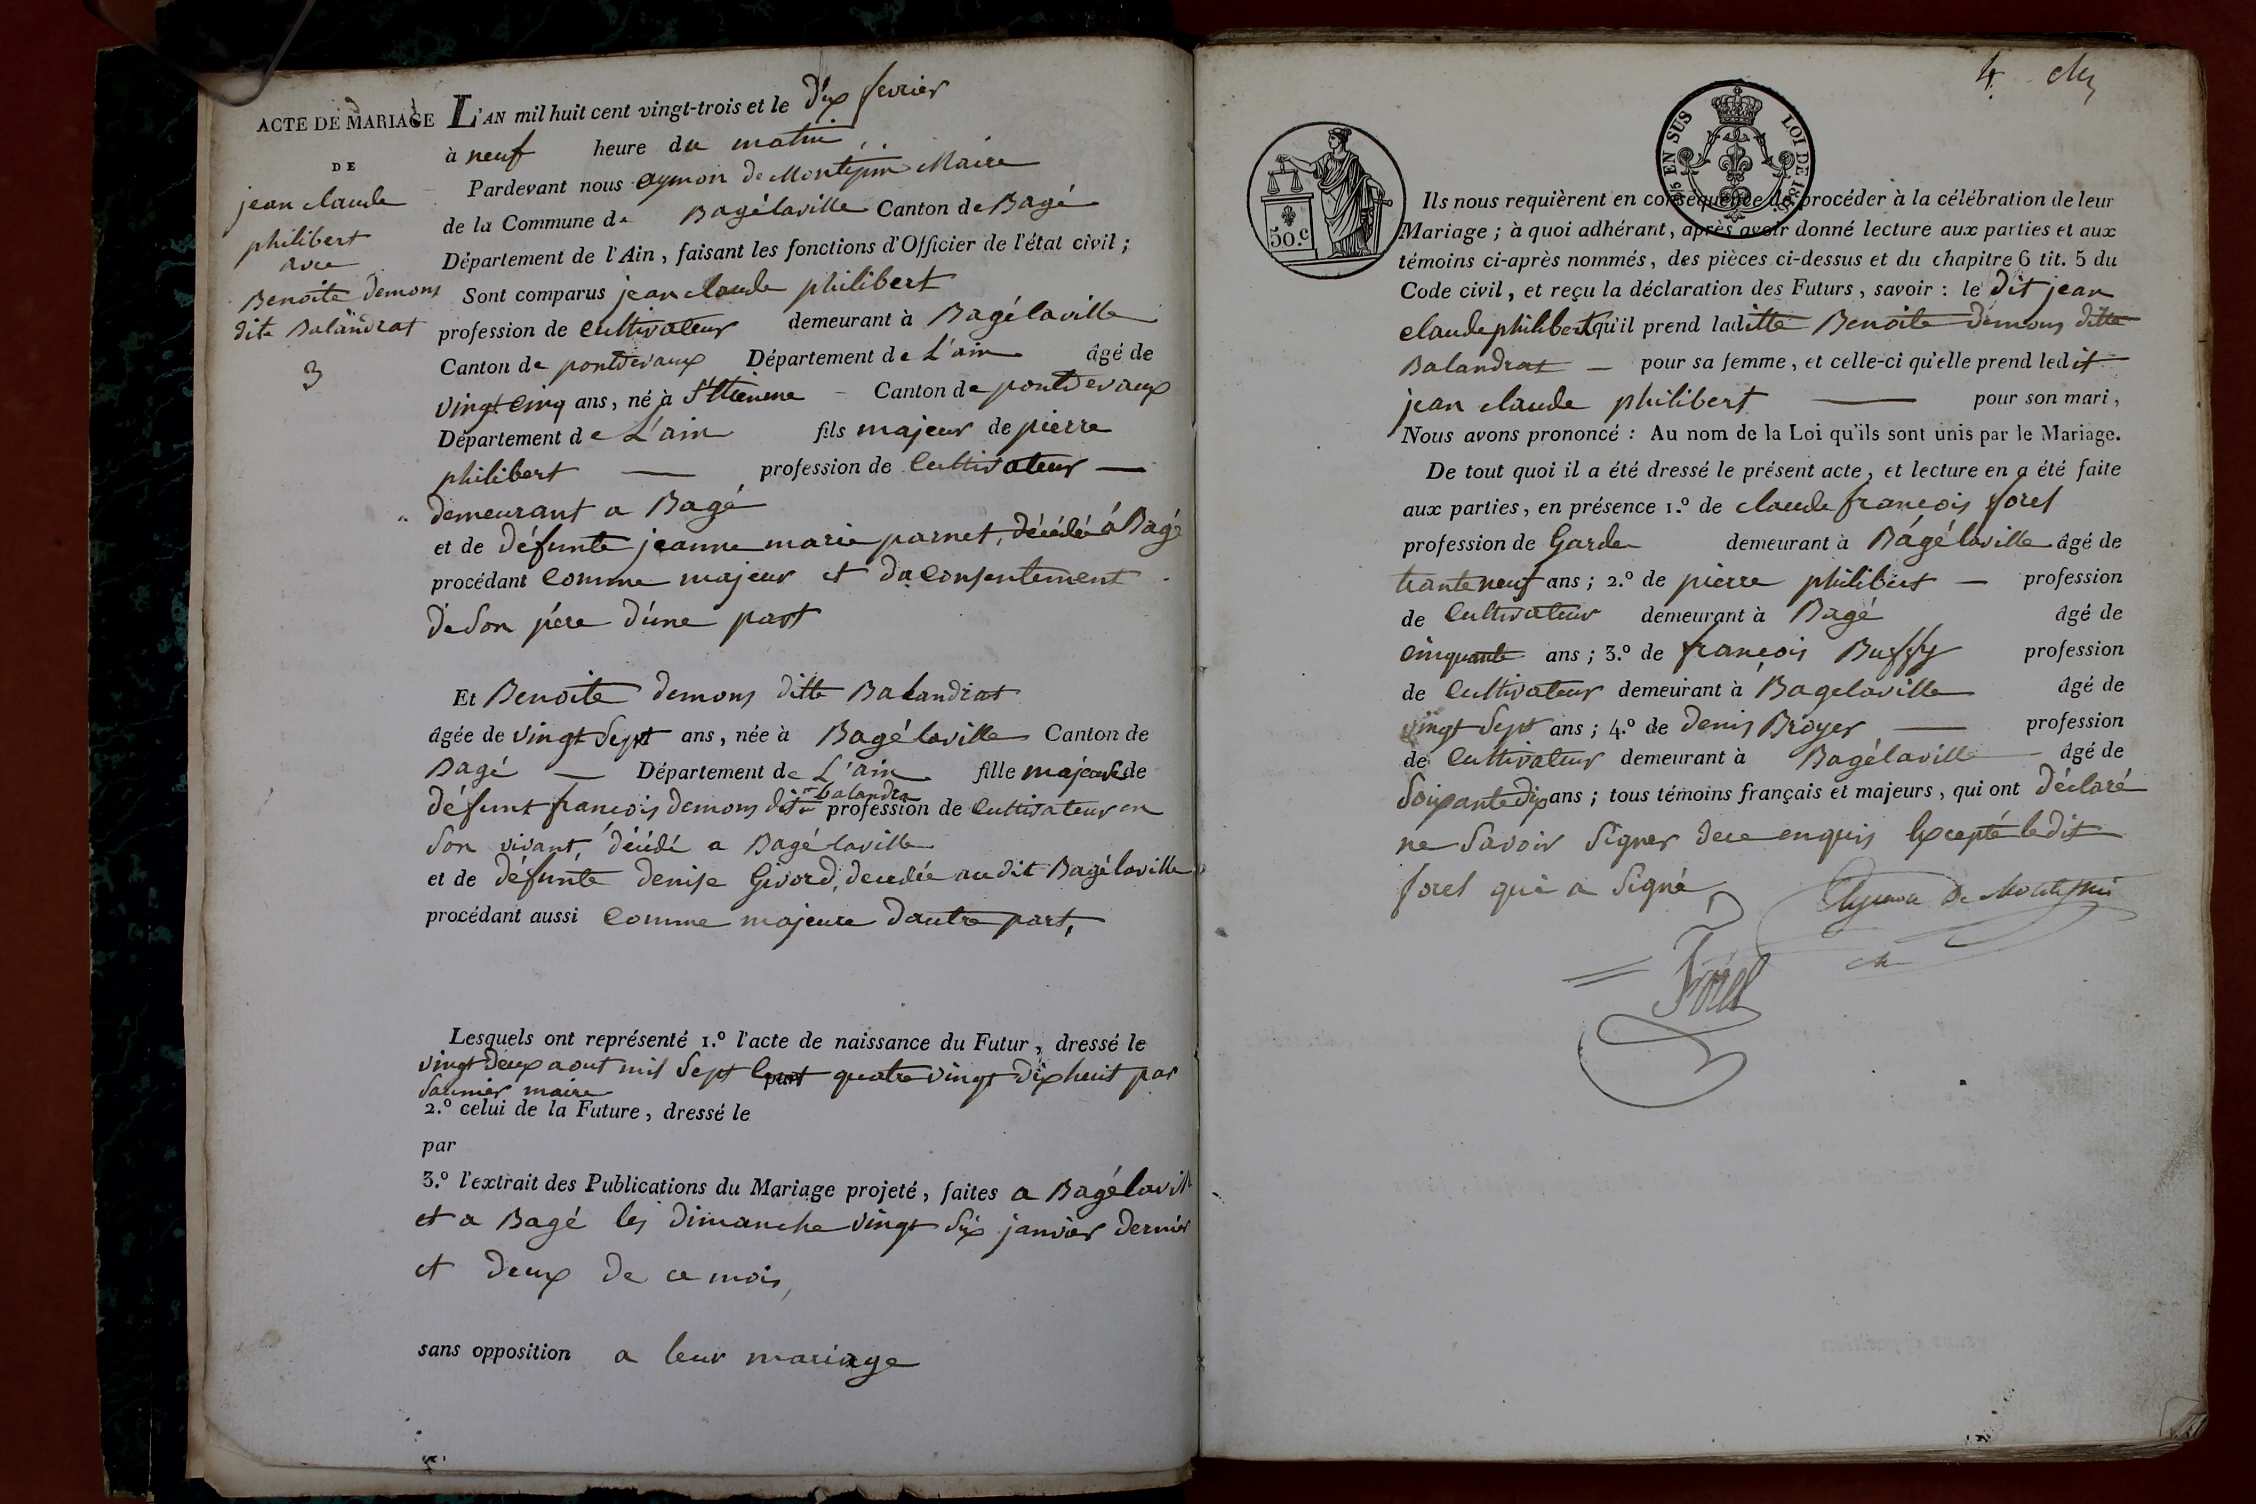 ACTE DE MARIAGE
DE
jean claude
philibert
avec
Benoite demons
dite Balandrat
3
L'AN mil huit cent vingt-trois et le dix fevrier
à neuf heure du matin
Pardevant nous aymon de Montépin Maire
de la Commune de Bagélaville Canton de Bagé
Département de l'Ain, faisant les fonctions d'Officier de l'état civil ;
Sont comparus jean claude philibert
profession de cultivateur demeurant à Bagélaville
Canton de pontdevaux Département de L'ain âgé de
vingt cinq ans, né à St Etienne – Canton de pontdevaux
Département de L'ain fils majeur de pierre
philibert — profession de cultivateur —
demeurant a Bagé
et de défunte jeanne marie parnet, décédée a Bagé
procédant comme majeur et du consentement
de son pére d'une part
Et Benoite demons ditte Balandrat
âgée de vingt Sept ans, née à Bagélaville Canton de
Bagé — Département de L'ain fille majeure de
défunt françois demons dit balandra profession de cultivateur en
son vivant, décédé a Bagélaville
et de défunte denise Givord, decedée au dit Bagélaville
procédant aussi comme majeure d'autre part,
Lesquels ont représenté 1.º l'acte de naissance du Futur, dressé le
vingt deux aout mil Sept cent quatre vingt dix huit par
Saunier maire
2.º celui de la Future, dressé le
par
3.º l'extrait des Publications du Mariage projeté, faites a Bagélavill
et a Bagé les dimanche vingt Six janvier dernier
et deux de ce mois,
sans opposition a leur mariage
4
EN SUS LOI DE 18
50.c
Ils nous requièrent en conséquence de procéder à la célébration de leur
Mariage ; à quoi adhérant, après avoir donné lecture aux parties et aux
témoins ci-après nommés, des pièces ci-dessus et du chapitre 6 tit. 5 du
Code civil, et reçu la déclaration des Futurs, savoir : le dit jean
claude philibert qu'il prend laditte Benoite demons ditte
Balandrat — pour sa femme, et celle-ci qu'elle prend ledit
jean claude philibert — pour son mari,
Nous avons prononcé : Au nom de la Loi qu'ils sont unis par le Mariage.
De tout quoi il a été dressé le présent acte, et lecture en a été faite
aux parties, en présence 1.º de claude françois forel
profession de Garde demeurant à Bagélaville âgé de
trante neuf ans ; 2.º de pierre philibert — profession
de cultivateur demeurant à Bagé âgé de
cinquante ans ; 3.º de françois Buffy profession
de cultivateur demeurant à Bagelaville âgé de
vingt Sept ans ; 4.º de denis Broyer — profession
de cultivateur demeurant à Bagélaville âgé de
Soixante dix ans ; tous témoins français et majeurs, qui ont déclaré
ne Savoir Signer de ce enquis Excepté ledit
forel qui a Signé
Aymon de Montépin
Forel